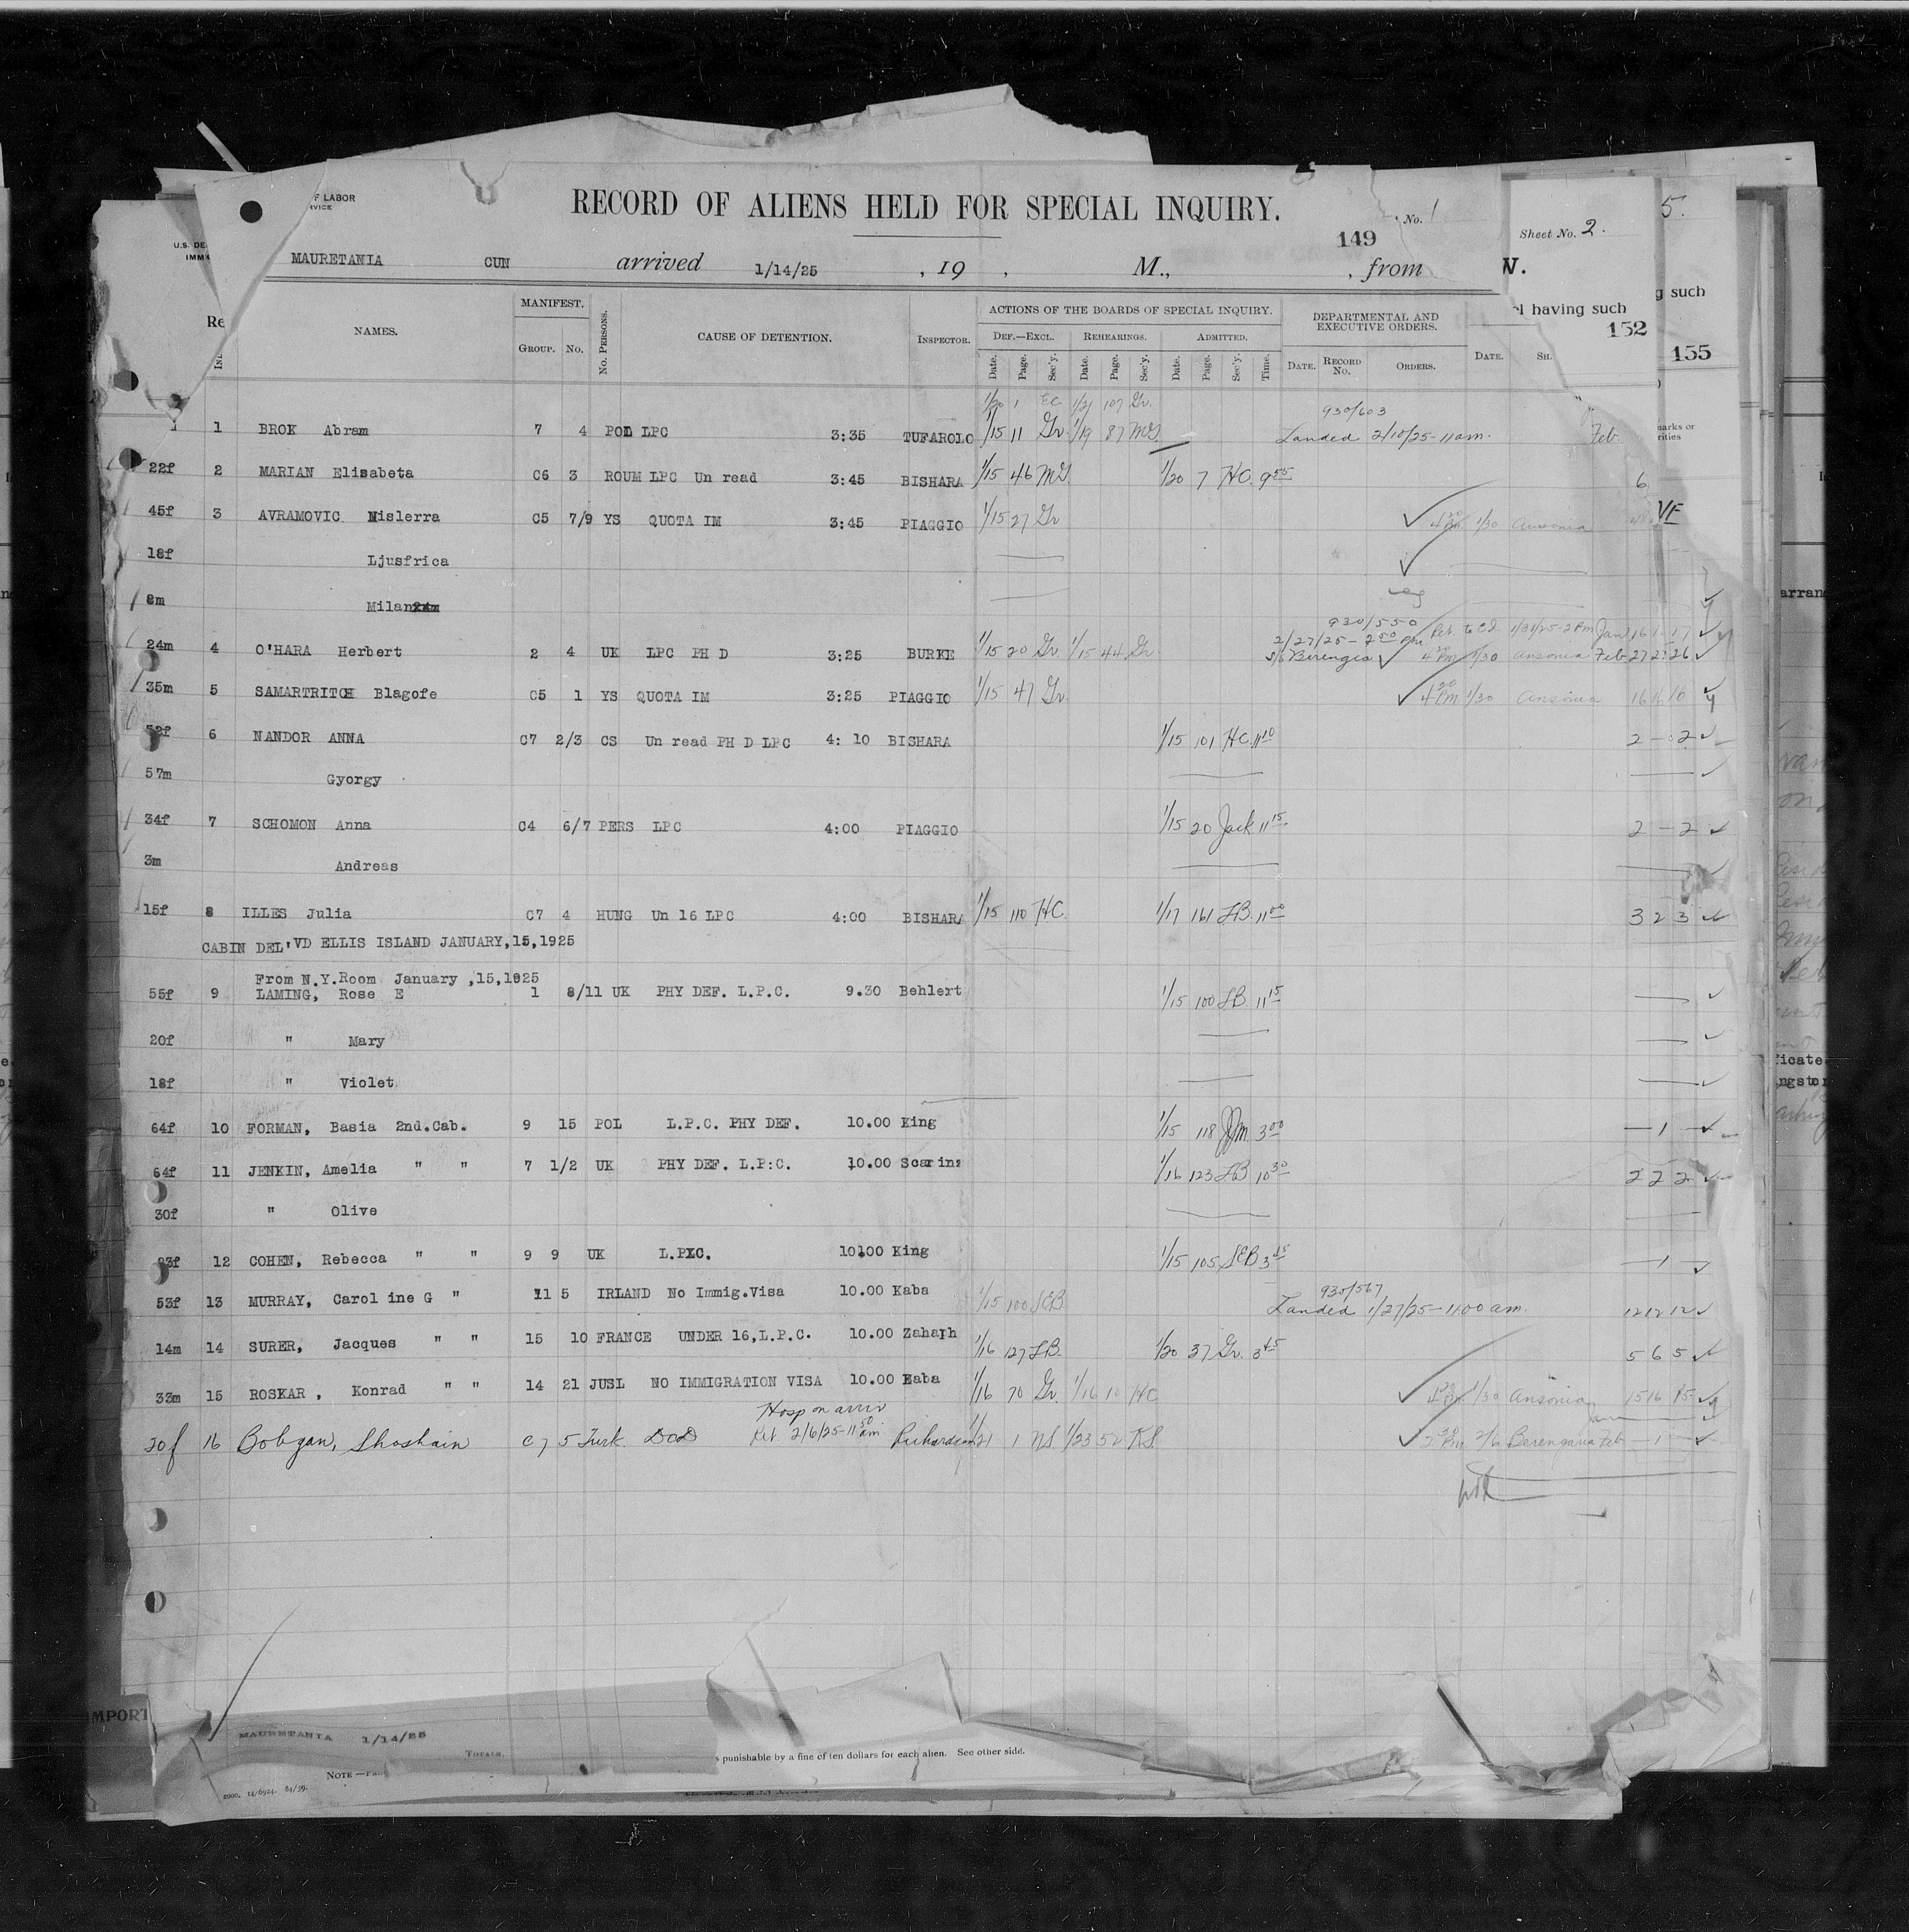 F LABOR
RVICE
RECORD OF ALIENS HELD FOR SPECIAL INQUIRY.
No. 1
149
Sheet No. 2.
5.
U.S. DE
IMMIG
MAURETANIA CUN arrived 1/14/25 , 19 , M., , from
W.
having such
g such
152
155
NAMES.
MANIFEST.
GROUP. No.
No. PERSONS.
CAUSE OF DETENTION.
INSPECTOR.
ACTIONS OF THE BOARDS OF SPECIAL INQUIRY.
DEF.—EXCL. REHEARINGS. ADMITTED.
Date. Page. Sec'y. Date. Page. Sec'y. Date. Page. Sec'y. Time.
DEPARTMENTAL AND
EXECUTIVE ORDERS.
DATE. RECORD No. ORDERS.
DATE. SH.
1/20 1 EC 1/21 107 Gr. 930/603
1 BROK Abram 7 4 POL LPC 3:35 TUFAROLO 1/15 11 Gr. 1/19 87 Landed 2/10/25-11am. Feb.
22f 2 MARIAN Elisabeta C6 3 ROUM LPC Un read 3:45 BISHARA 1/15 46 1/20 7 HC. 9 55 6
45f 3 AVRAMOVIC Mislerra C5 7/9 YS QUOTA IM 3:45 PIAGGIO 1/15 27 Gr 4 20 Pm 1/30 Ansonia
VE
18f Ljusfrica
8m Milan
930/550
2/27/25-2 50 Pm Ret. to EI 1/31/25-2Pm Jan 16 17
24m 4 O'HARA Herbert 2 4 UK LPC PH D 3:25 BURKE 1/15 20 Gr. 1/15 44 Gr. S/S Berengia 4 20 Pm 1/30 Ansonia Feb 27 27 26
35m 5 SAMARTRITCH Blagofe C5 1 YS QUOTA IM 3:25 PIAGGIO 1/15 47 Gr. 4 20 Pm 1/30 Ansonia 16 16 10
52f 6 NANDOR ANNA C7 2/3 CS Un read PH D LPC 4: 10 BISHARA 1/15 101 HC. 11 10 2 - 2
57m Gyorgy
34f 7 SCHOMON Anna C4 6/7 PERS LPC 4:00 PIAGGIO 1/15 20 Jack 11 15 2 - 2
3m Andreas
15f 8 ILLES Julia C7 4 HUNG Un 16 LPC 4:00 BISHARA 1/15 110 HC. 1/17 161 11 00 3 2 3
CABIN DEL'VD ELLIS ISLAND JANUARY,15,1925
From N.Y.Room January ,15,1925
55f 9 LAMING, Rose E 1 8/11 UK PHY DEF. L.P.C. 9.30 Behlert 1/15 100 11 15
20f " Mary
18f " Violet
64f 10 FORMAN, Basia 2nd.Cab. 9 15 POL L.P.C. PHY DEF. 10.00 King 1/15 118 3 00 - 1 -
64f 11 JENKIN, Amelia " " 7 1/2 UK PHY DEF. L.P:C. 10.00 1/16 123 10 30 2 2 2
30f " Olive
12 COHEN, Rebecca " " 9 9 UK 10.00 King 1/15 105 SEB 3 45 - 1 -
930/567
53f 13 MURRAY, Carol ine G " 11 5 IRLAND No Immig.Visa 10.00 Kaba 1/15 100 SEB Landed 1/27/25-11:00 am. 12 12 12
14m 14 SURER, Jacques " " 15 10 FRANCE UNDER 16,L.P.C. 10.00 1/16 127 1/20 37 Gr. 3 45 5 6 5
33m 15 ROSKAR , Konrad " " 14 21 JUSL NO IMMIGRATION VISA 10.00 Kaba 1/16 70 Gr. 1/16 10 HC 4 20 Pm 1/30 Ansonia 15 16 15
Hosp on arriv
20f 16 Bobgan, Shoshain C7 5 Turk. DCD Ret. 2/6/25-11 50 am Richardson 1/21 1 NS. 1/23 52 RS. 2 Pm 2/6 Berengaria Feb - 1 -
arran
ficate
IMPORT
MAURETANIA 1/14/25
TOTALS.
s punishable by a fine of ten dollars for each alien. See other side.
NOTE
14/6924.